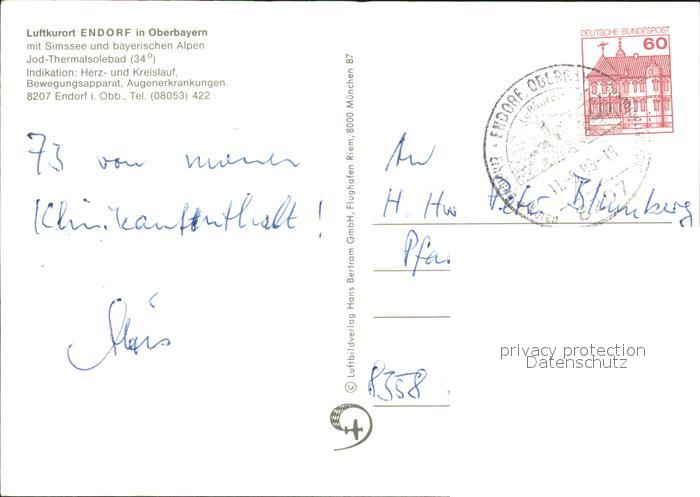 Luftkurort ENDORF in Oberbayern
mit Simssee und bayerischen Alpen
Jod-Thermalsolebad (34⁰)
Indikation: Herz- und Kreislauf,
Bewegungsapparat, Augenerkrankungen.
8207 Endorf i. Obb., Tel. (08053) 422
73 von meiner
Klinikaufenthalt!
© Luftbildverlag Hans Bertram GmbH, Flughafen Riem, 8000 München 87
DEUTSCHE BUNDESPOST
60
ENDORF, OBERB
Luftkurort
8207
An
H. Hw Peter Blumberg
Pfa
8358
privacy protection
Datenschutz